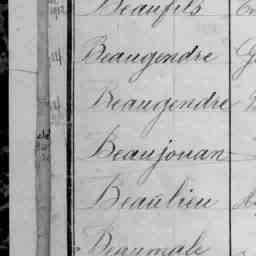 Beaufils
Beaugendre
Beaugendre
Beaujouan
Beaulieu
Beaumale